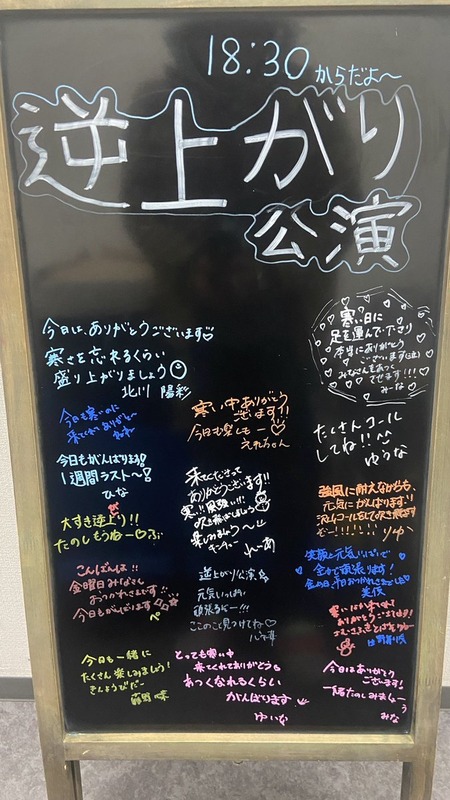 18:30 からだよ〜
逆上がり
公演
今日は、ありがとうございます
寒さを忘れるくらい
盛り上がりましょう
北川 陽彩
寒い日に
足を運んで下さり
本当にありがとう
ございます
みなさんをあつく
させます!!!
みーな
今日も寒いのに
来てくれてありがとう
寒い中ありがとう
ございます!!
今日も楽しもー♡
たくさんコール
してね!!
ゆうな
今日もがんばります!
1週間ラスト〜!
ひな
来てくださって
ありがとうございます!!
寒い!!
楽しみましょう〜
強風に耐えながらも、
元気にがんばります!
りゆ
大すき逆上り!!
たのしもうねー♡
こんばんは!!
金曜日みなさん
おつかれさまです
今日もがんばります
逆上がり公演
元気いっぱい
頑張るぞー!!!
ここのこと見つけてね♡
笑顔と元気いっぱいで
全力で頑張ります!
ありがとうございます!
今日も一緒に
たくさん楽しみましょう!
きんようびだー
とっても寒い中
来てくれてありがとう
あっつくなれるくらい
がんばります
ゆいな
今日はありがとう
ございます!
一緒にたのしみましょー
みな